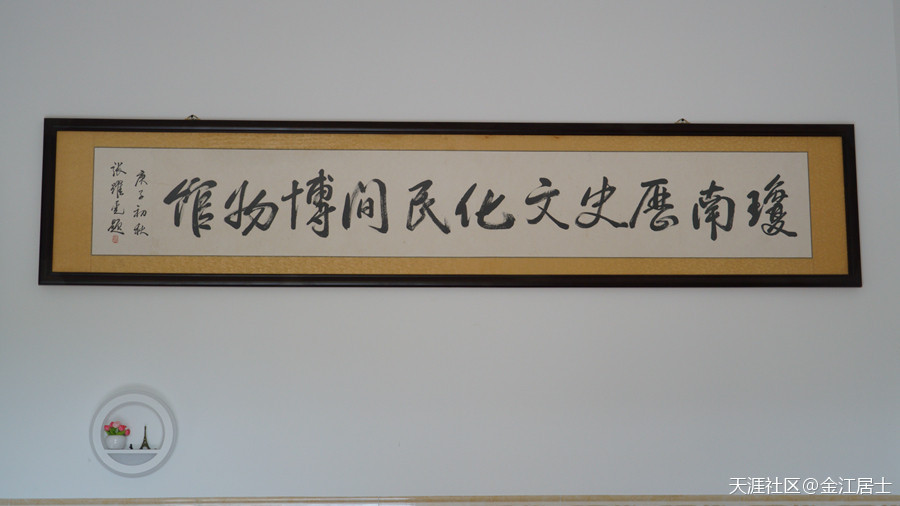 瓊南歷史文化民間博物館
庚子初秋
张耀光题
天涯社区@金江居士